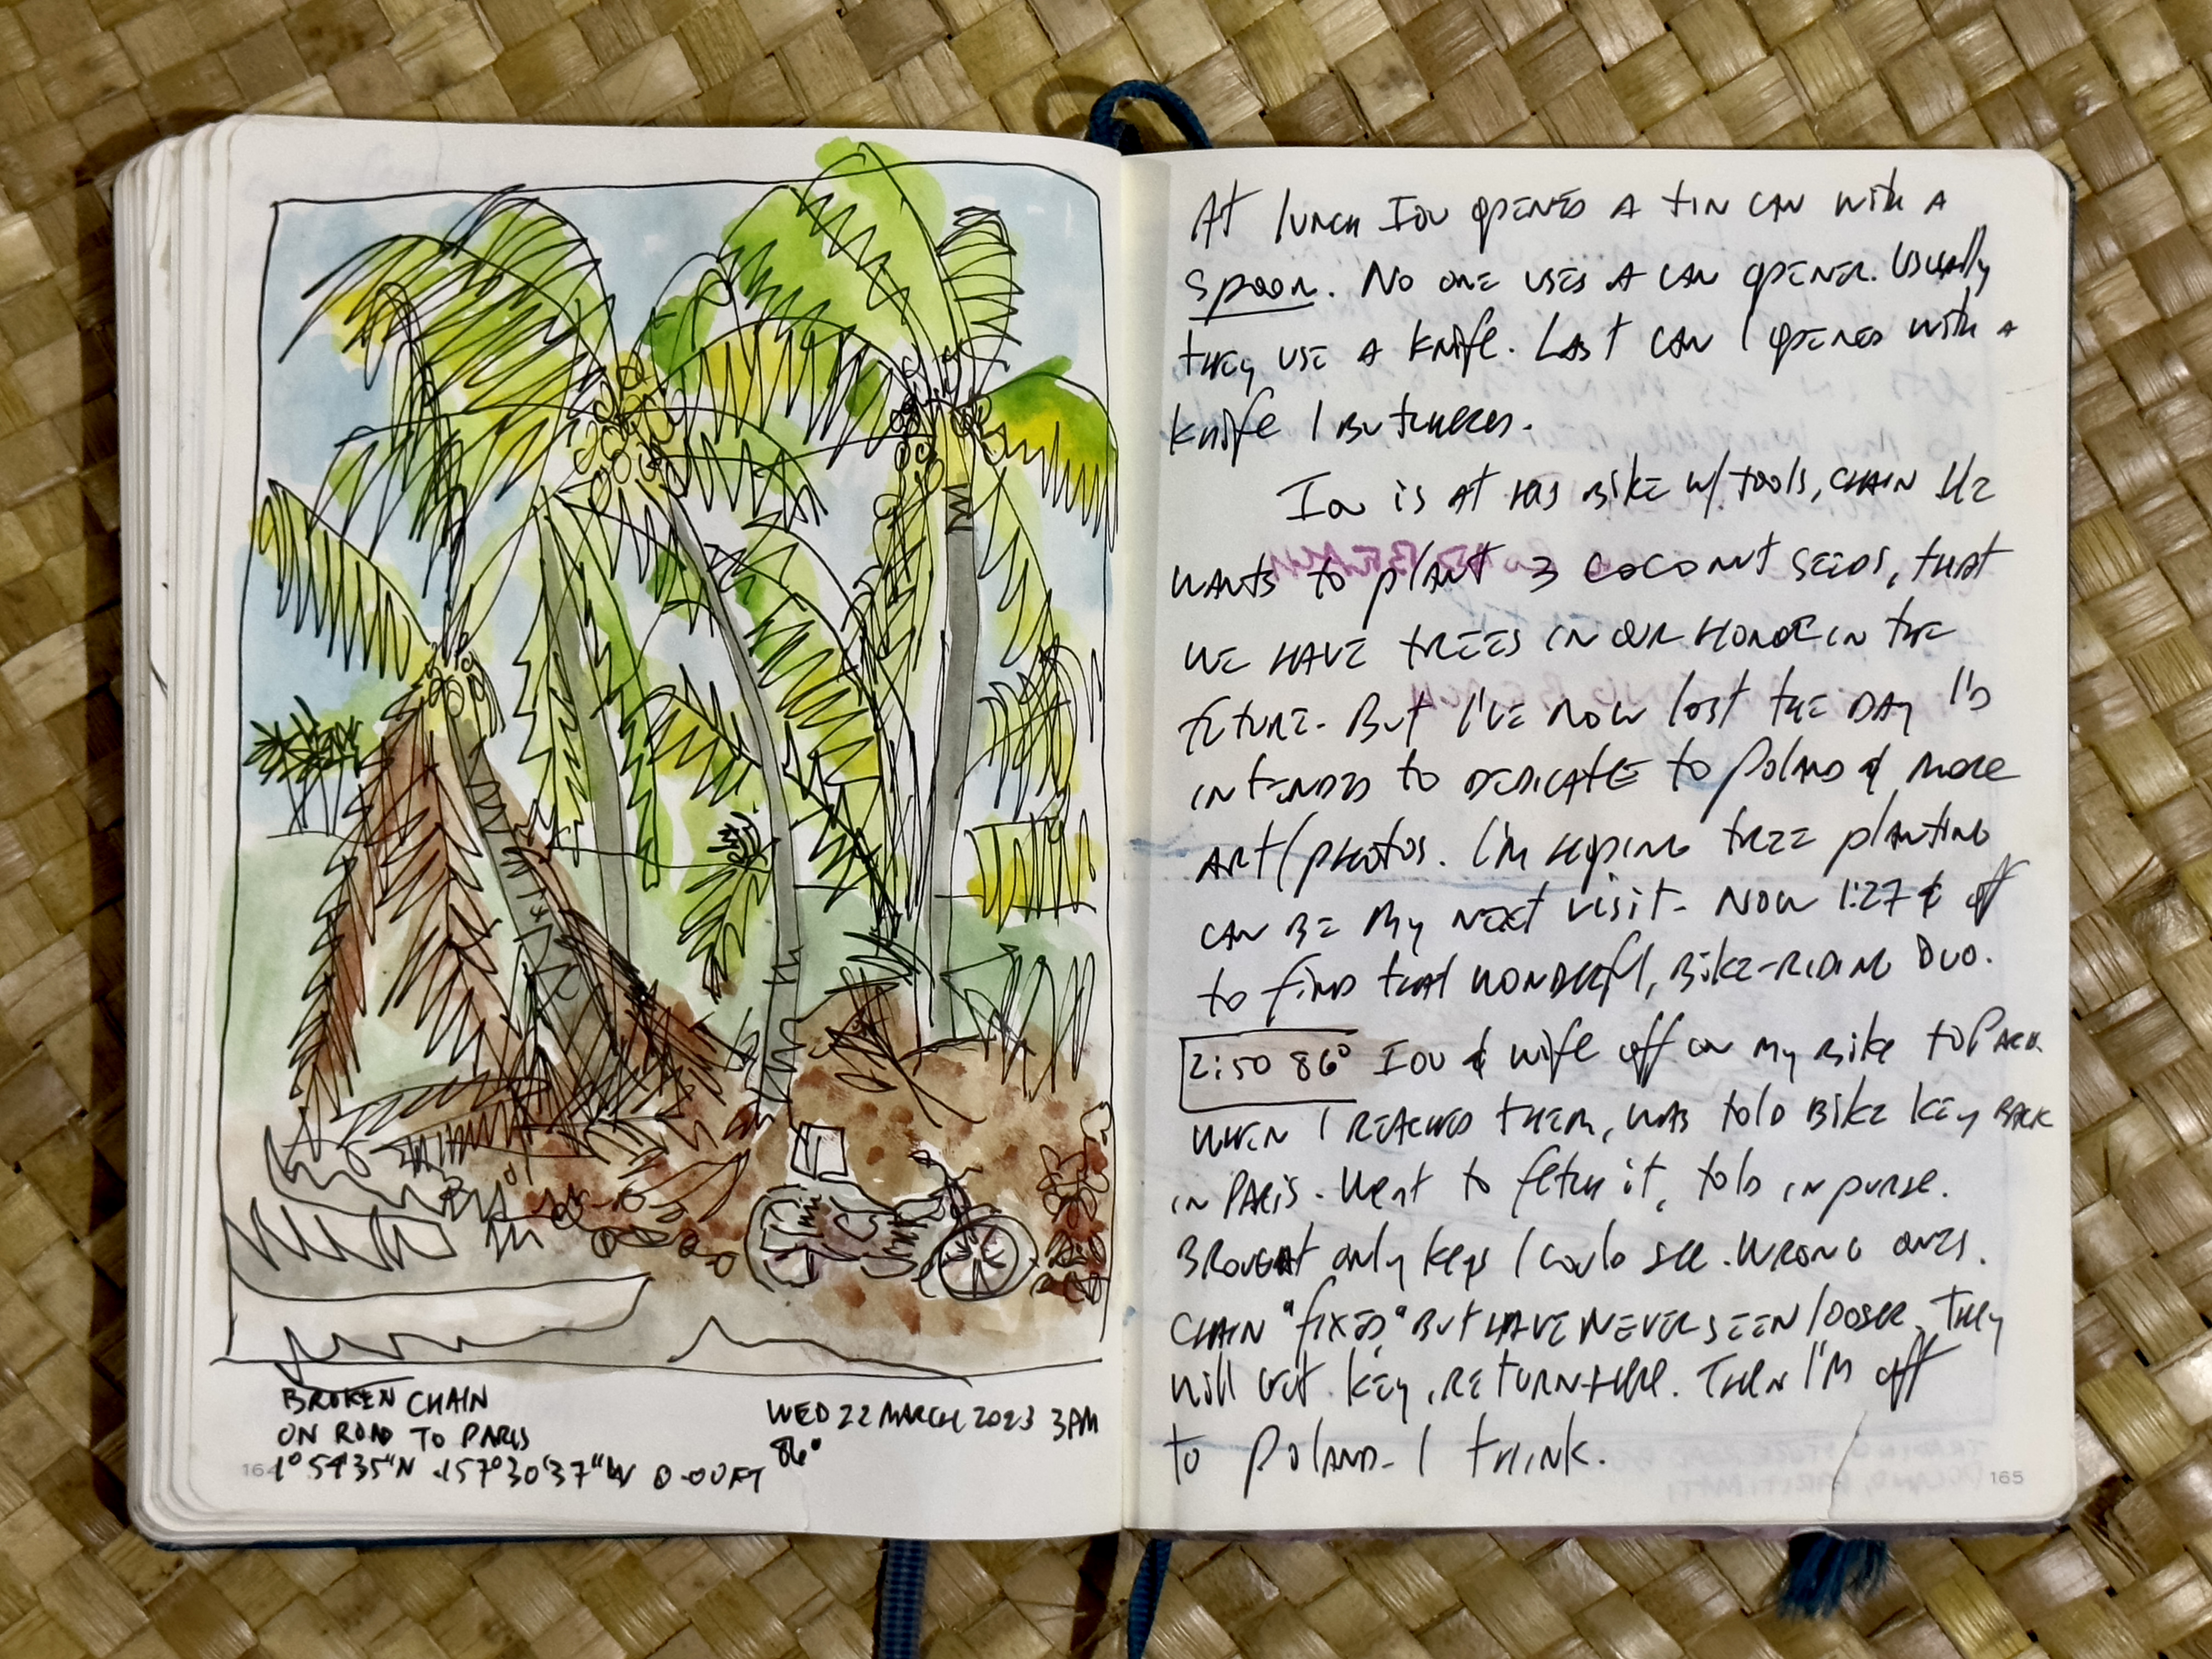 BROKEN CHAIN
ON ROAD TO PARIS
1°54'35"N -157°30'37"W 0.00FT
WED 22 MARCH 2023 3PM
86°
164
At lunch Iou opened a tin can with a
spoon. No one uses a can opener. Usually
they use a knife. Last can I opened with a
knife I butchered.
Iou is at his bike w/ tools, chain. He
wants to plant 3 coconut seeds, that
we have trees in our honor in the
future. But I've now lost the day I'd
intended to dedicate to Poland & more
art/photos. I'm hoping tree planting
can be my next visit. Now 1:27 & off
to find that wonderful, bike-riding duo.
2:50 86° Iou & wife off on my bike to Paris.
When I reached them, was told bike key back
in Paris. Went to fetch it, told in purse.
Brought only keys I could see. Wrong ones.
Chain "fixed" but have never seen looser. They
will get key, return here. Then I'm off
to Poland. I think.
165